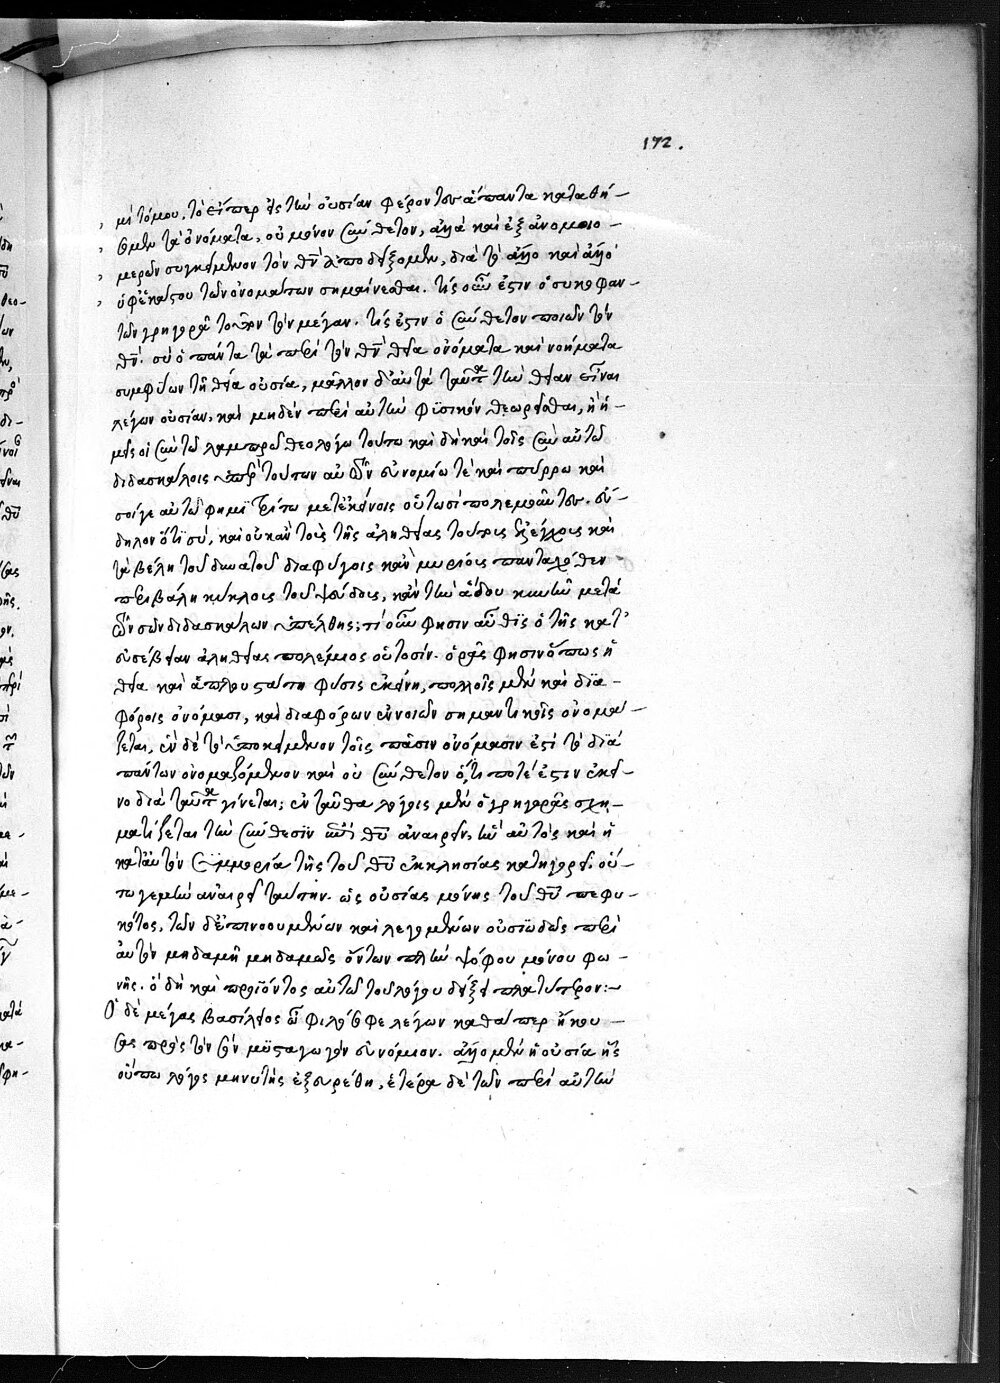 172.
μὴ τόμου, τὸ εἴπερ εἰς τὴν οὐσίαν φέροντες ἅπαντα καταθή-
σομεν τὰ ὀνόματα, οὐ μόνον σύνθετον, ἀλλὰ καὶ ἐξ ἀνομοιο-
μερῶν συγκείμενον τὸν θν̄ ἀποδείξομεν, διὰ τὸ ἄλλο καὶ ἄλλο
ὑφ' ἑκάστου τῶν ὀνομάτων σημαίνεσθαι. τίς οὖν ἐστιν ὁ συκοφαν-
τῶν γρηγορᾶ τὸν μέγαν. τίς ἐστιν ὁ σύνθετον ποιῶν τὸν
θν̄. σὺ ὁ πάντα τὰ περὶ τὸν θν̄ θεῖα ὀνόματα καὶ νοήματα
συμφύων τῆ θεία οὐσία, μᾶλλον δ' αὐτὰ ταῦτα τὴν θείαν εἶναι
λέγων οὐσίαν, καὶ μηδὲν περὶ αὐτὴν φϋσικὸν θεωρεῖσθαι, ἢ ἡ-
μεῖς οἱ σὺν τῶ λαμπρῶ θεολόγω τούτω καὶ δὴ καὶ τοῖς σὺν αὐτῶ
διδασκάλοις ὑπὲρ τούτων αὖ ὧν εὐνομίω τὲ καὶ πύρρω καὶ
σοίγε αὐτῶ φημὶ τρίτω μετ' ἐκείνοις οὑτωσὶ πολεμοῦντες. εὔ-
δηλον ὅτι σύ, καὶ οὐκ ἂν τοὺς τῆς ἀληθείας τούτους ἐξελέγχους καὶ
τὰ βέλη τοῦ δυνατοῦ διαφύγοις κἂν μυρίοις πανταχόθεν
περιβάλη κύκλοις τοῦ ψεύδους, κἂν τὴν ἅδου κυνῆν μετὰ
τῶν σῶν διδασκάλων ὑπέλθης; τί οὖν φησιν αὖθις ὁ τῆς κατ'
εὐσέβειαν ἀληθείας πολέμιος οὑτοσίν. ὁρᾶς φησιν ὅπως ἡ
θεία καὶ ἁπλουστάτη φύσις ἐκείνη, πολλοῖς μὲν καὶ δϊα-
φόροις ὀνόμασι, καὶ διαφόρων ἐννοιῶν σημαντικοῖς ὀνομά-
ζεται, ἓν δὲ τὸ ὑποκείμενον τοῖς πᾶσιν ὀνόμασίν ἐστι τὸ διὰ
πάντων ὀνομαζόμενον καὶ οὐ σύνθετον ὅ,τι ποτέ ἐστιν ἐκεῖ-
νο διὰ ταῦτα γίνεται; ἐνταῦθα λόγοις μὲν ὁ γρηγορᾶς σχη-
ματίζεται τὴν σύνθεσϊν ἀπὸ θῡ ἀναιρεῖν, ἣν αὐτὸς καὶ ἡ
κατ' αὐτὸν συμμορία τῆς τοῦ θῡ ἐκκλησίας κατηγορεῖ. οὔ-
τω γε μὴν ἀναιρεῖ ταύτην. ὡς οὐσίας μόνης τοῦ θῡ πεφυ-
κότος, τῶν δ' ἐπινοουμένων καὶ λεγομένων οὐσϊωδῶς περὶ
αὐτὸν μηδαμῆ μηδαμῶς ὄντων πλὴν ψόφου μόνου φω-
νῆς. ὃ δὴ καὶ προϊόντος αὐτῶ τοῦ λόγου δείξει πλατύτερον:-
Ὁ δὲ μέγας βασίλειος ὦ φιλόσοφε λέγων καθάπερ ἤκου-
σας πρὸς τὸν σὸν μϋσταγωγὸν εὐνόμιον. ἄλλο μὲν ἡ οὐσία ἧς
οὔπω λόγος μηνυτὴς ἐξευρέθη, ἑτέρα δὲ τῶν περὶ αὐτὴν